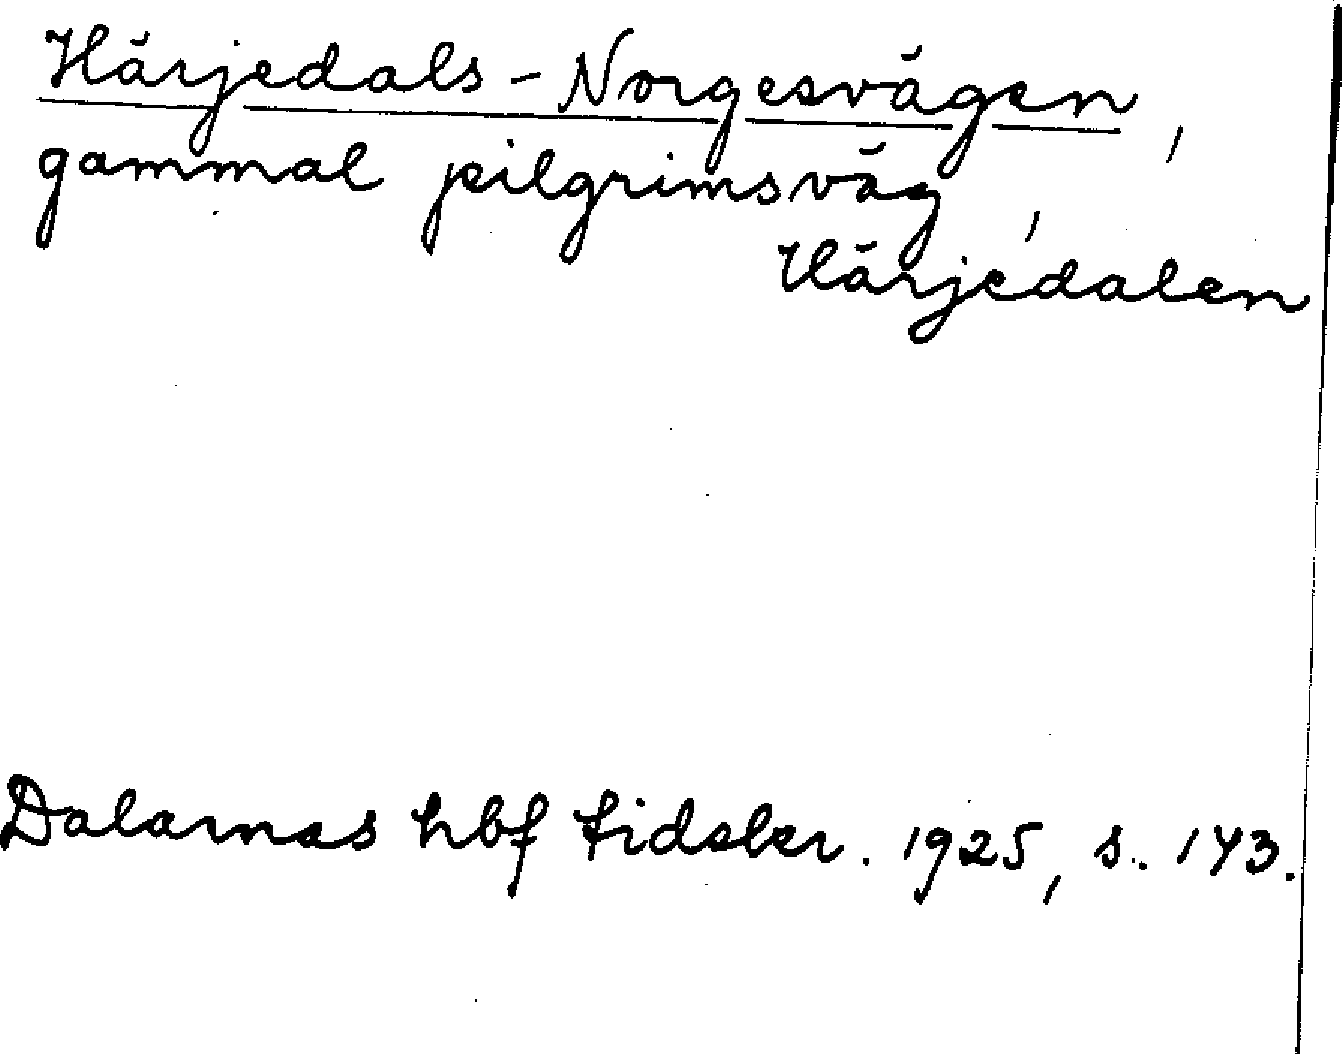 Härjedals-Norgesvägen,
gammal pilgrimsväg,
Härjedalen
Dalarnas hbf tidskr. 1925, s. 143.